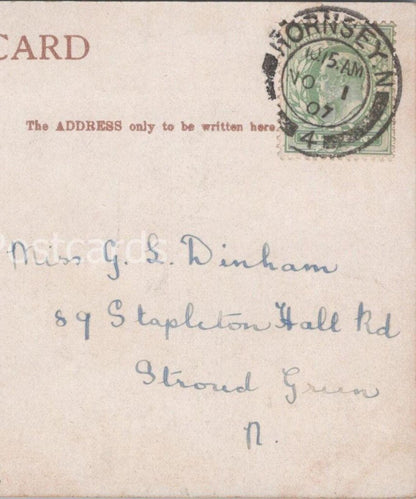 CARD
HORNSEY. N
10/5. AM
NO 1
07
4
The ADDRESS only to be written here.
Postcards
Miss G. L. Dinham
89 Stapleton Hall Rd
Stroud Green
N.